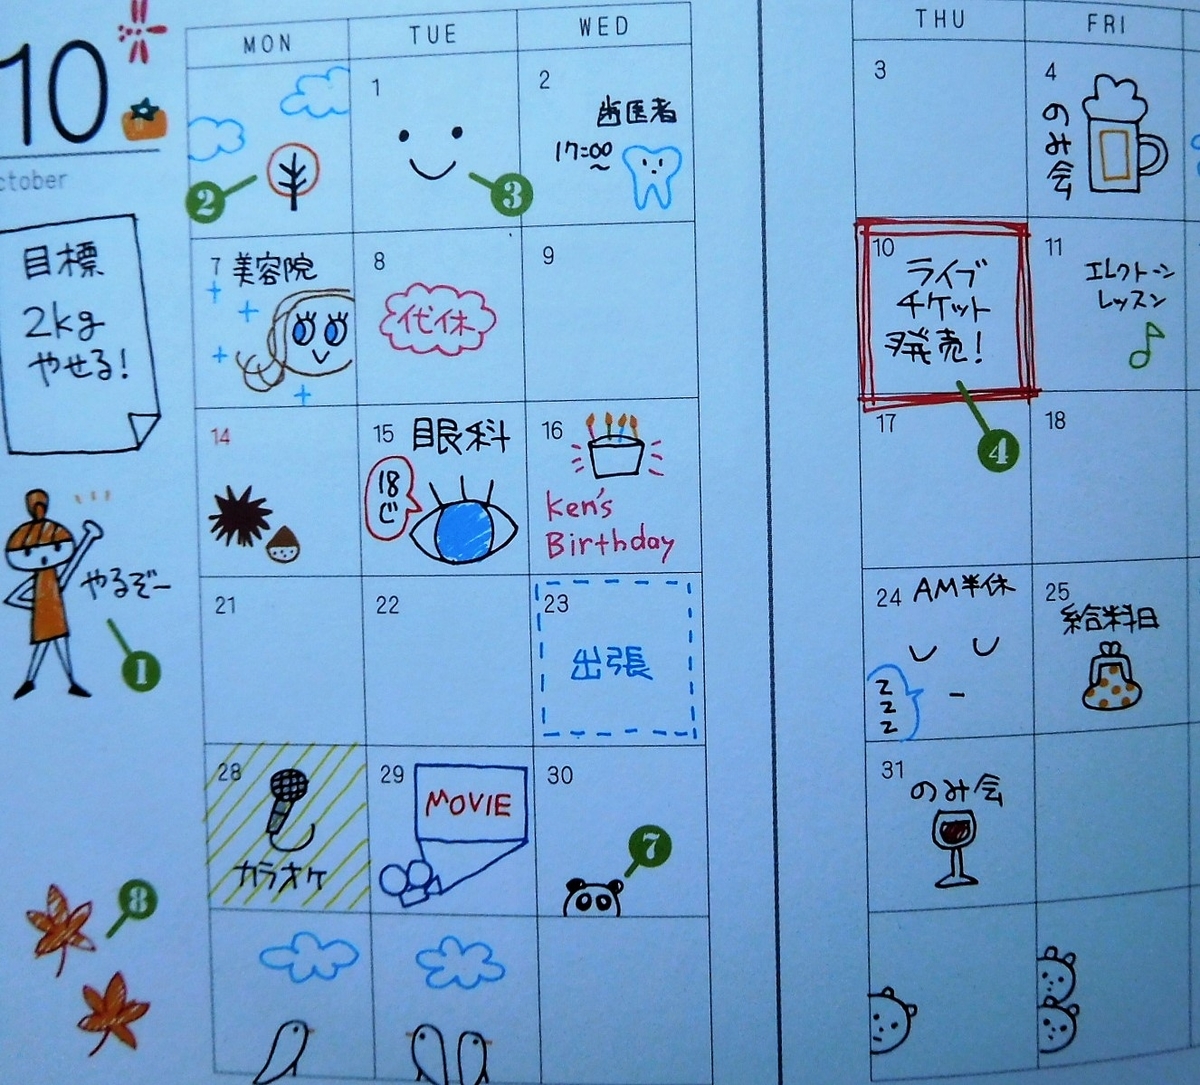 10
ctober
目標
2kg
やせる!
やるぞー
1
8
MON
TUE
WED
THU
FRI
2
1
3
2
歯医者
17:00
3
4
のみ会
7
美容院
8
代休
9
10
ライブ
チケット
発売!
4
11
エレクトーン
レッスン
14
15
眼科
18
じ
16
Ken's
Birthday
17
18
21
22
23
出張
24
AM半休
z
z
z
25
給料日
28
カラオケ
29
MOVIE
30
7
31
のみ会